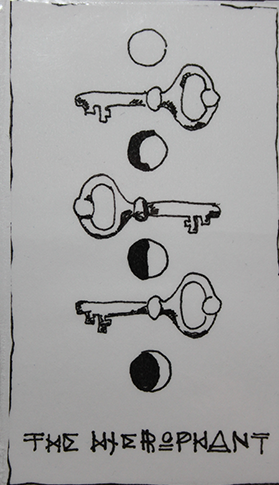 THE HIEROPHANT